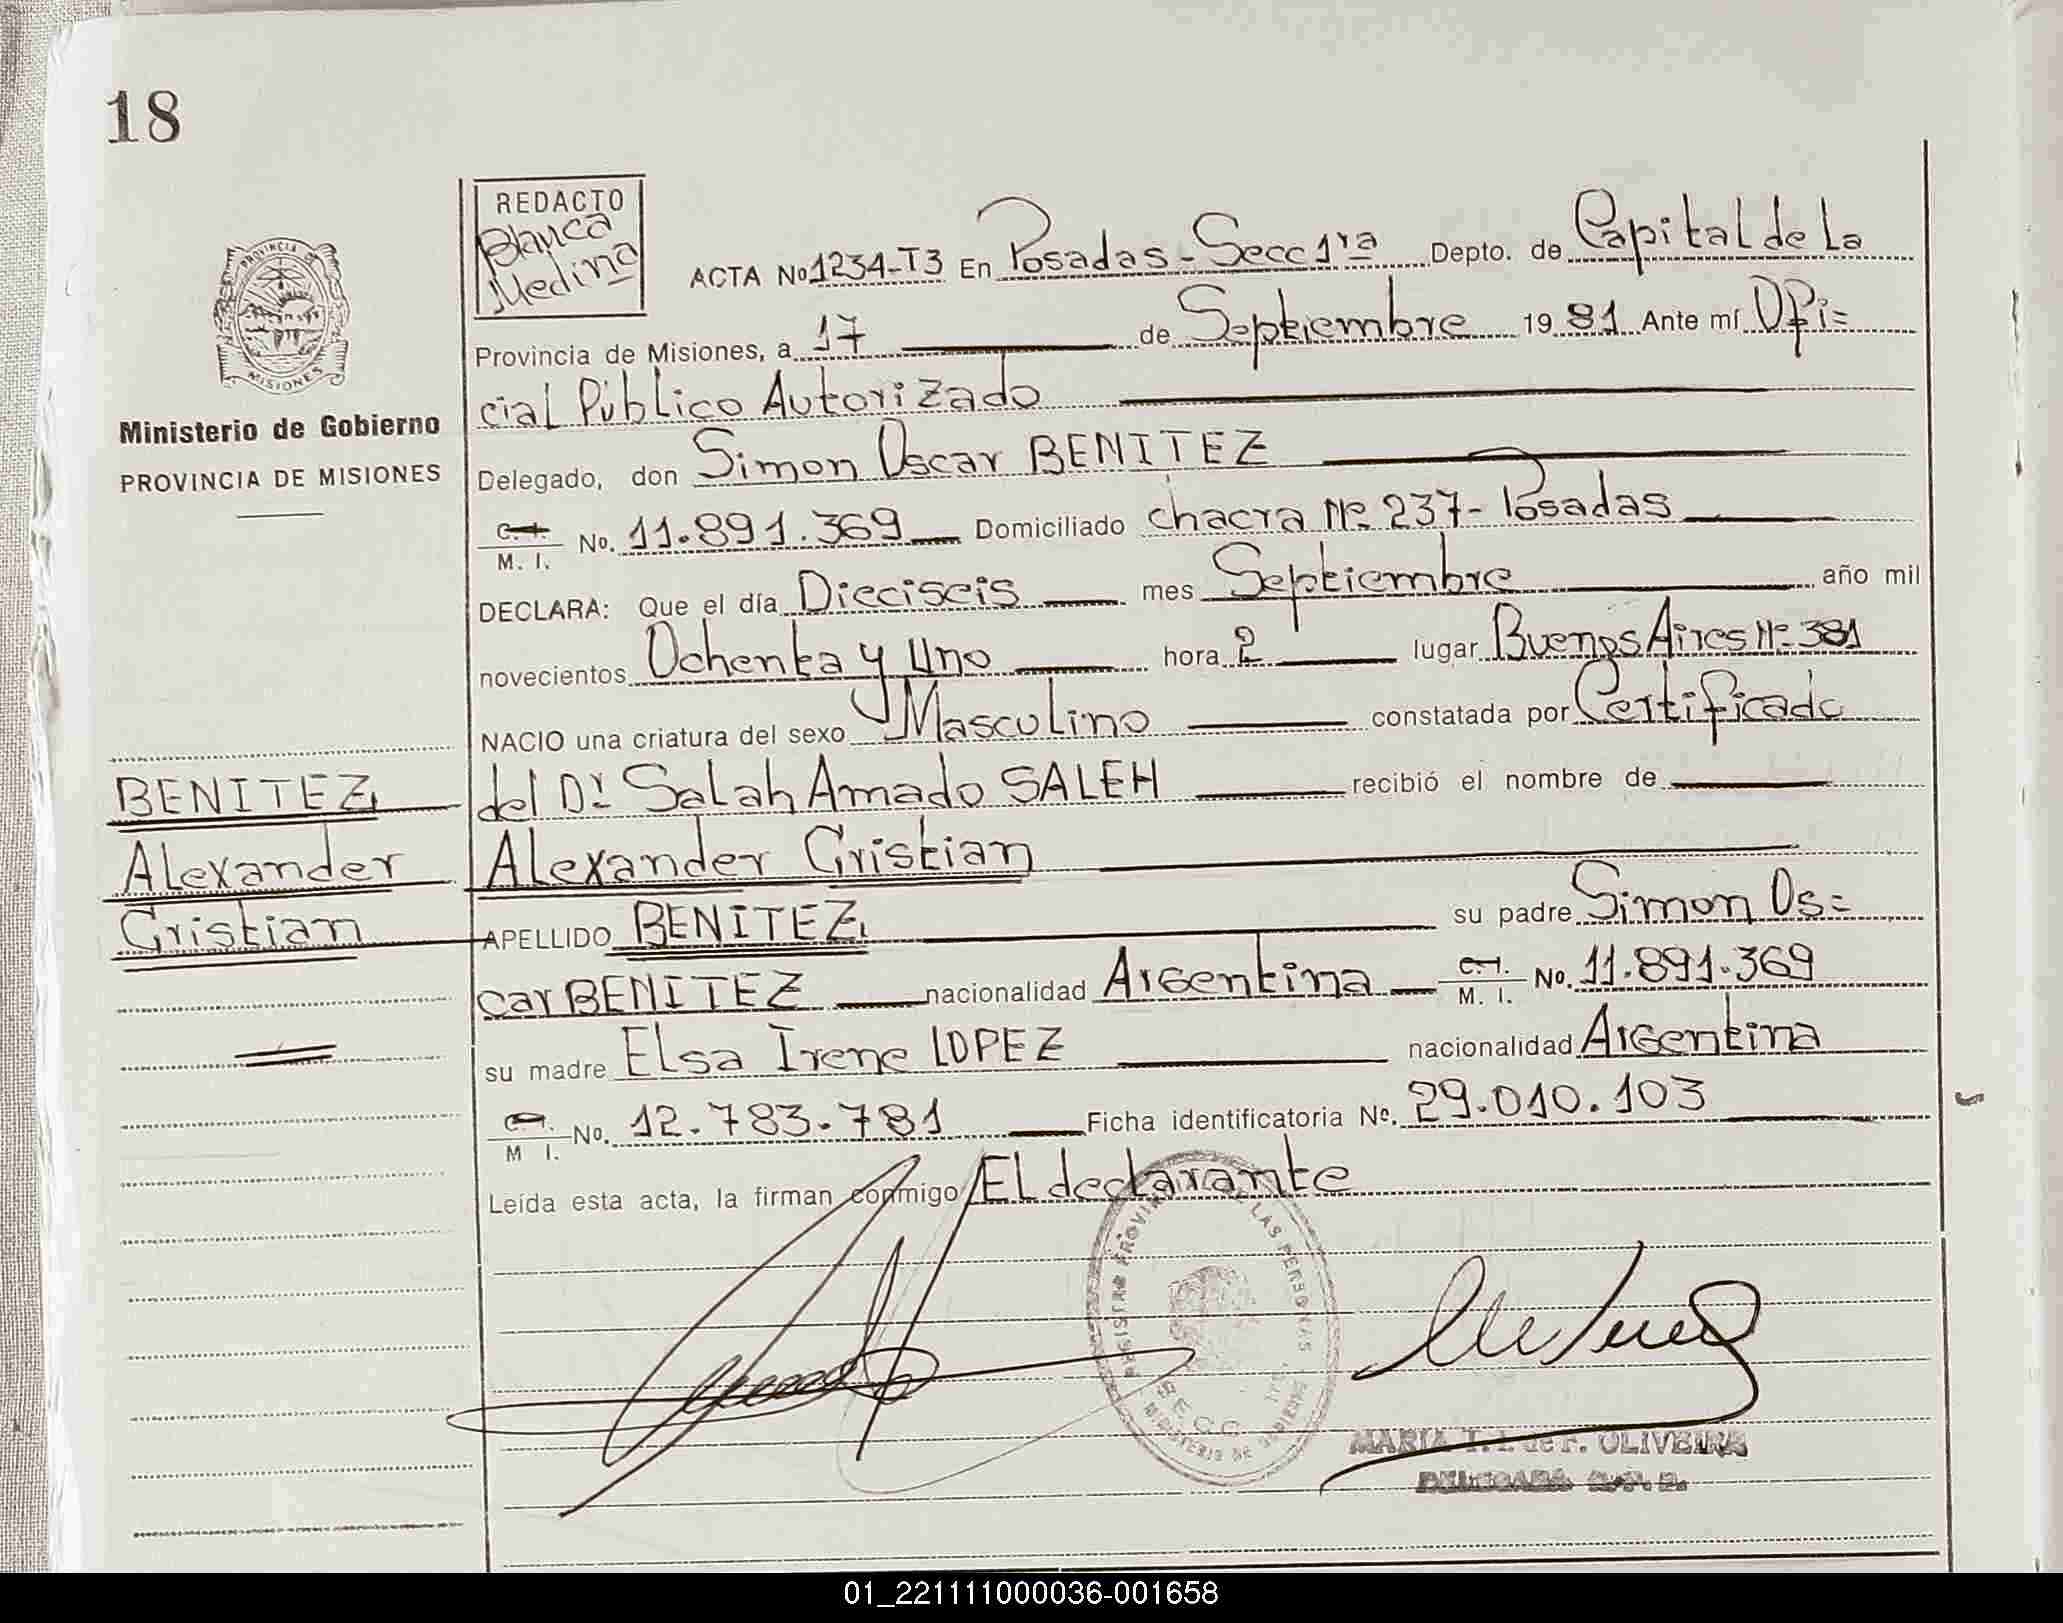 18
REDACTO
Blanca
Medina
PROVINCIA DE
MISIONES
Ministerio de Gobierno
PROVINCIA DE MISIONES
ACTA No 1234-T3 En Posadas - Secc 1ra Depto. de Capital de La
Provincia de Misiones, a 17 de Septiembre 19 81 Ante mí Ofi=
cial Público Autorizado
Delegado, don Simon Oscar BENITEZ
C. I. M. I. No. 11.891.369 Domiciliado chacra Nº 237- Posadas
DECLARA: Que el día Dieciseis mes Septiembre año mil
novecientos Ochenta y Uno hora 2 lugar Buenos Aires Nº 381
NACIO una criatura del sexo Masculino constatada por Certificado
del Dr Salah Amado SALEH recibió el nombre de
Alexander Cristian
APELLIDO BENITEZ su padre Simon Os=
car BENITEZ nacionalidad Argentina C. I. M. I. No. 11.891.369
su madre Elsa Irene LOPEZ nacionalidad Argentina
C. I. M I. No. 12.783.781 Ficha identificatoria No. 29.010.103
Leída esta acta, la firman conmigo El declarante
BENITEZ
Alexander
Cristian
REGISTRO PROVINCIAL DE LAS PERSONAS
SECC. 1ra
MINISTERIO DE GOBIERNO
MARIA T. I. de F. OLIVEIRA
DELEGADA R.P.P.
01_221111000036-001658